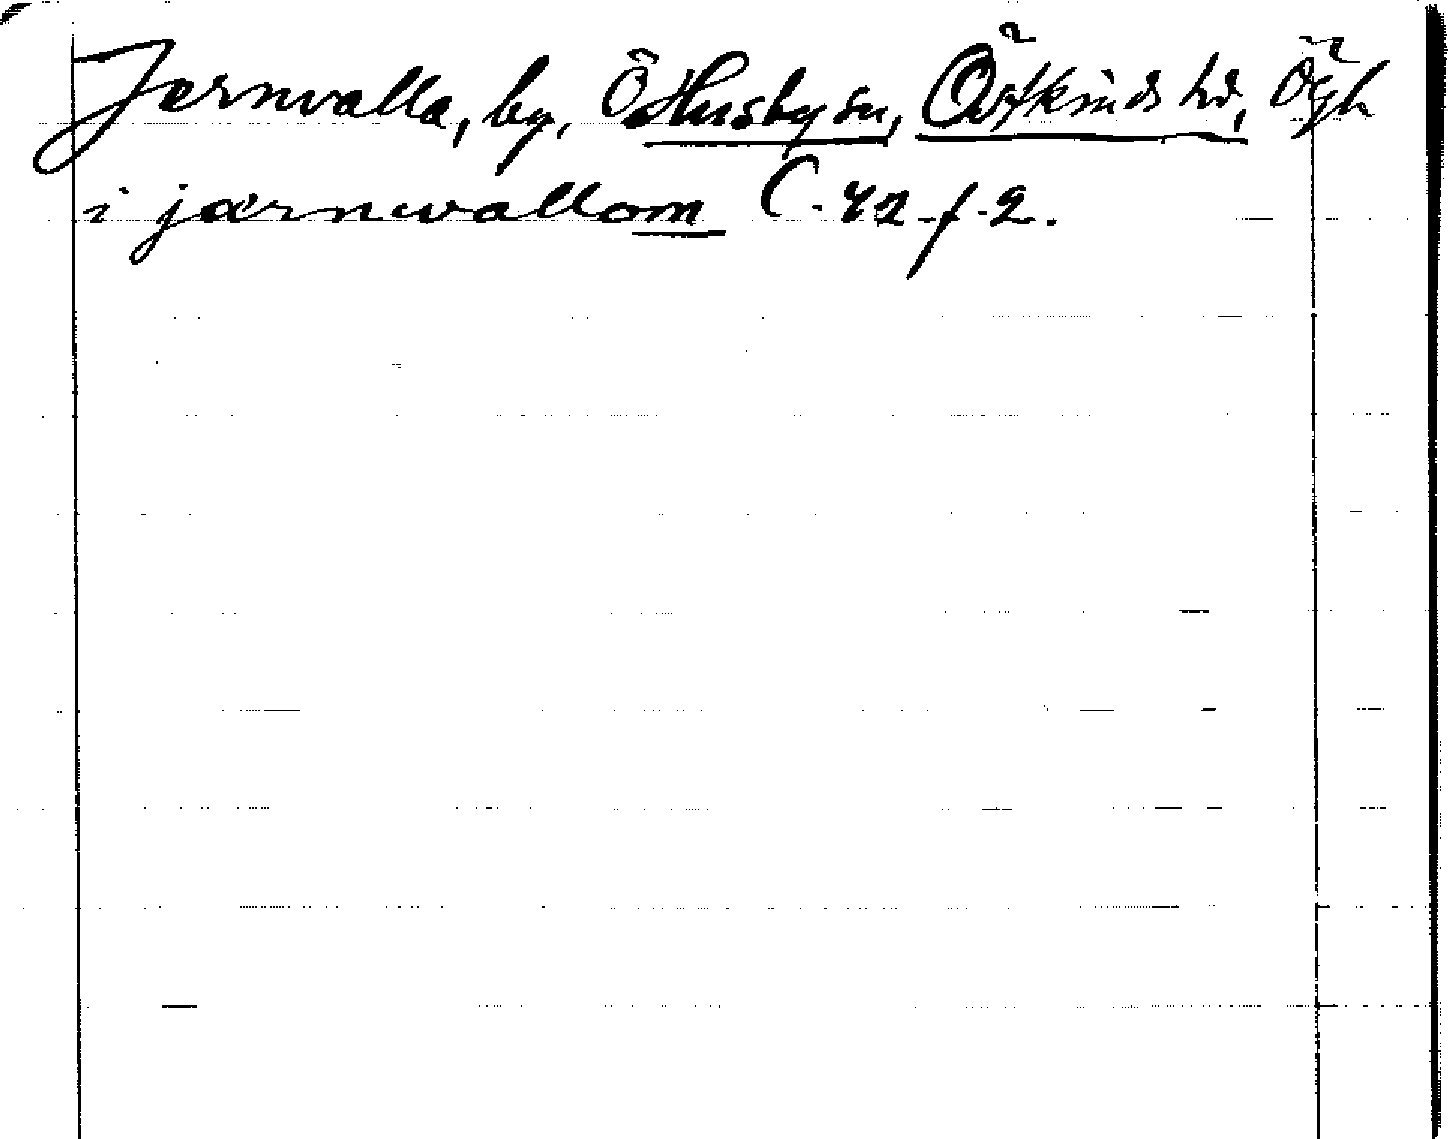 Jærnvalla, by, Ö Husby sn, Östkinds hd, Ögl
i jærnwallom C. 42 f. 2.